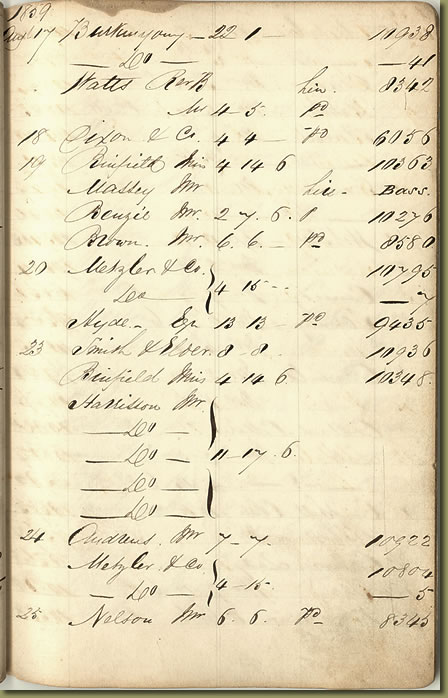 1859
Augt 17 Burkinyoung — 22 1 — 10938
— Do — — 41
Watts Revd B hire. 8342
Mr 4 - 5. pd
18 Dixon & Co. 4 4 — pd 6056
19 Binfield Miss 4 14 6 10363
Massey Mr hire - Bass.
Benzie Mr. 2 - 7. 6. p 10276
Brown. Mr. 6. 6. — pd 8580
20 Metzler & Co. 10795
Do 4 15 - - — 7
Hyde — Eqr 13 13 — pd 9435
23 Smith & Elder 8 - 8. 10936
Binfield Miss 4 14 6 10348.
Harrison Mr.
— Do —
— Do — 11 - 17. 6.
— Do —
— Do —
24 Andrews. Mr 7 - 7. 10922
Metzler. & Co. 10804
— Do — 4 - 15. — 5
25 Nelson Mr 6. 6. pd 8345